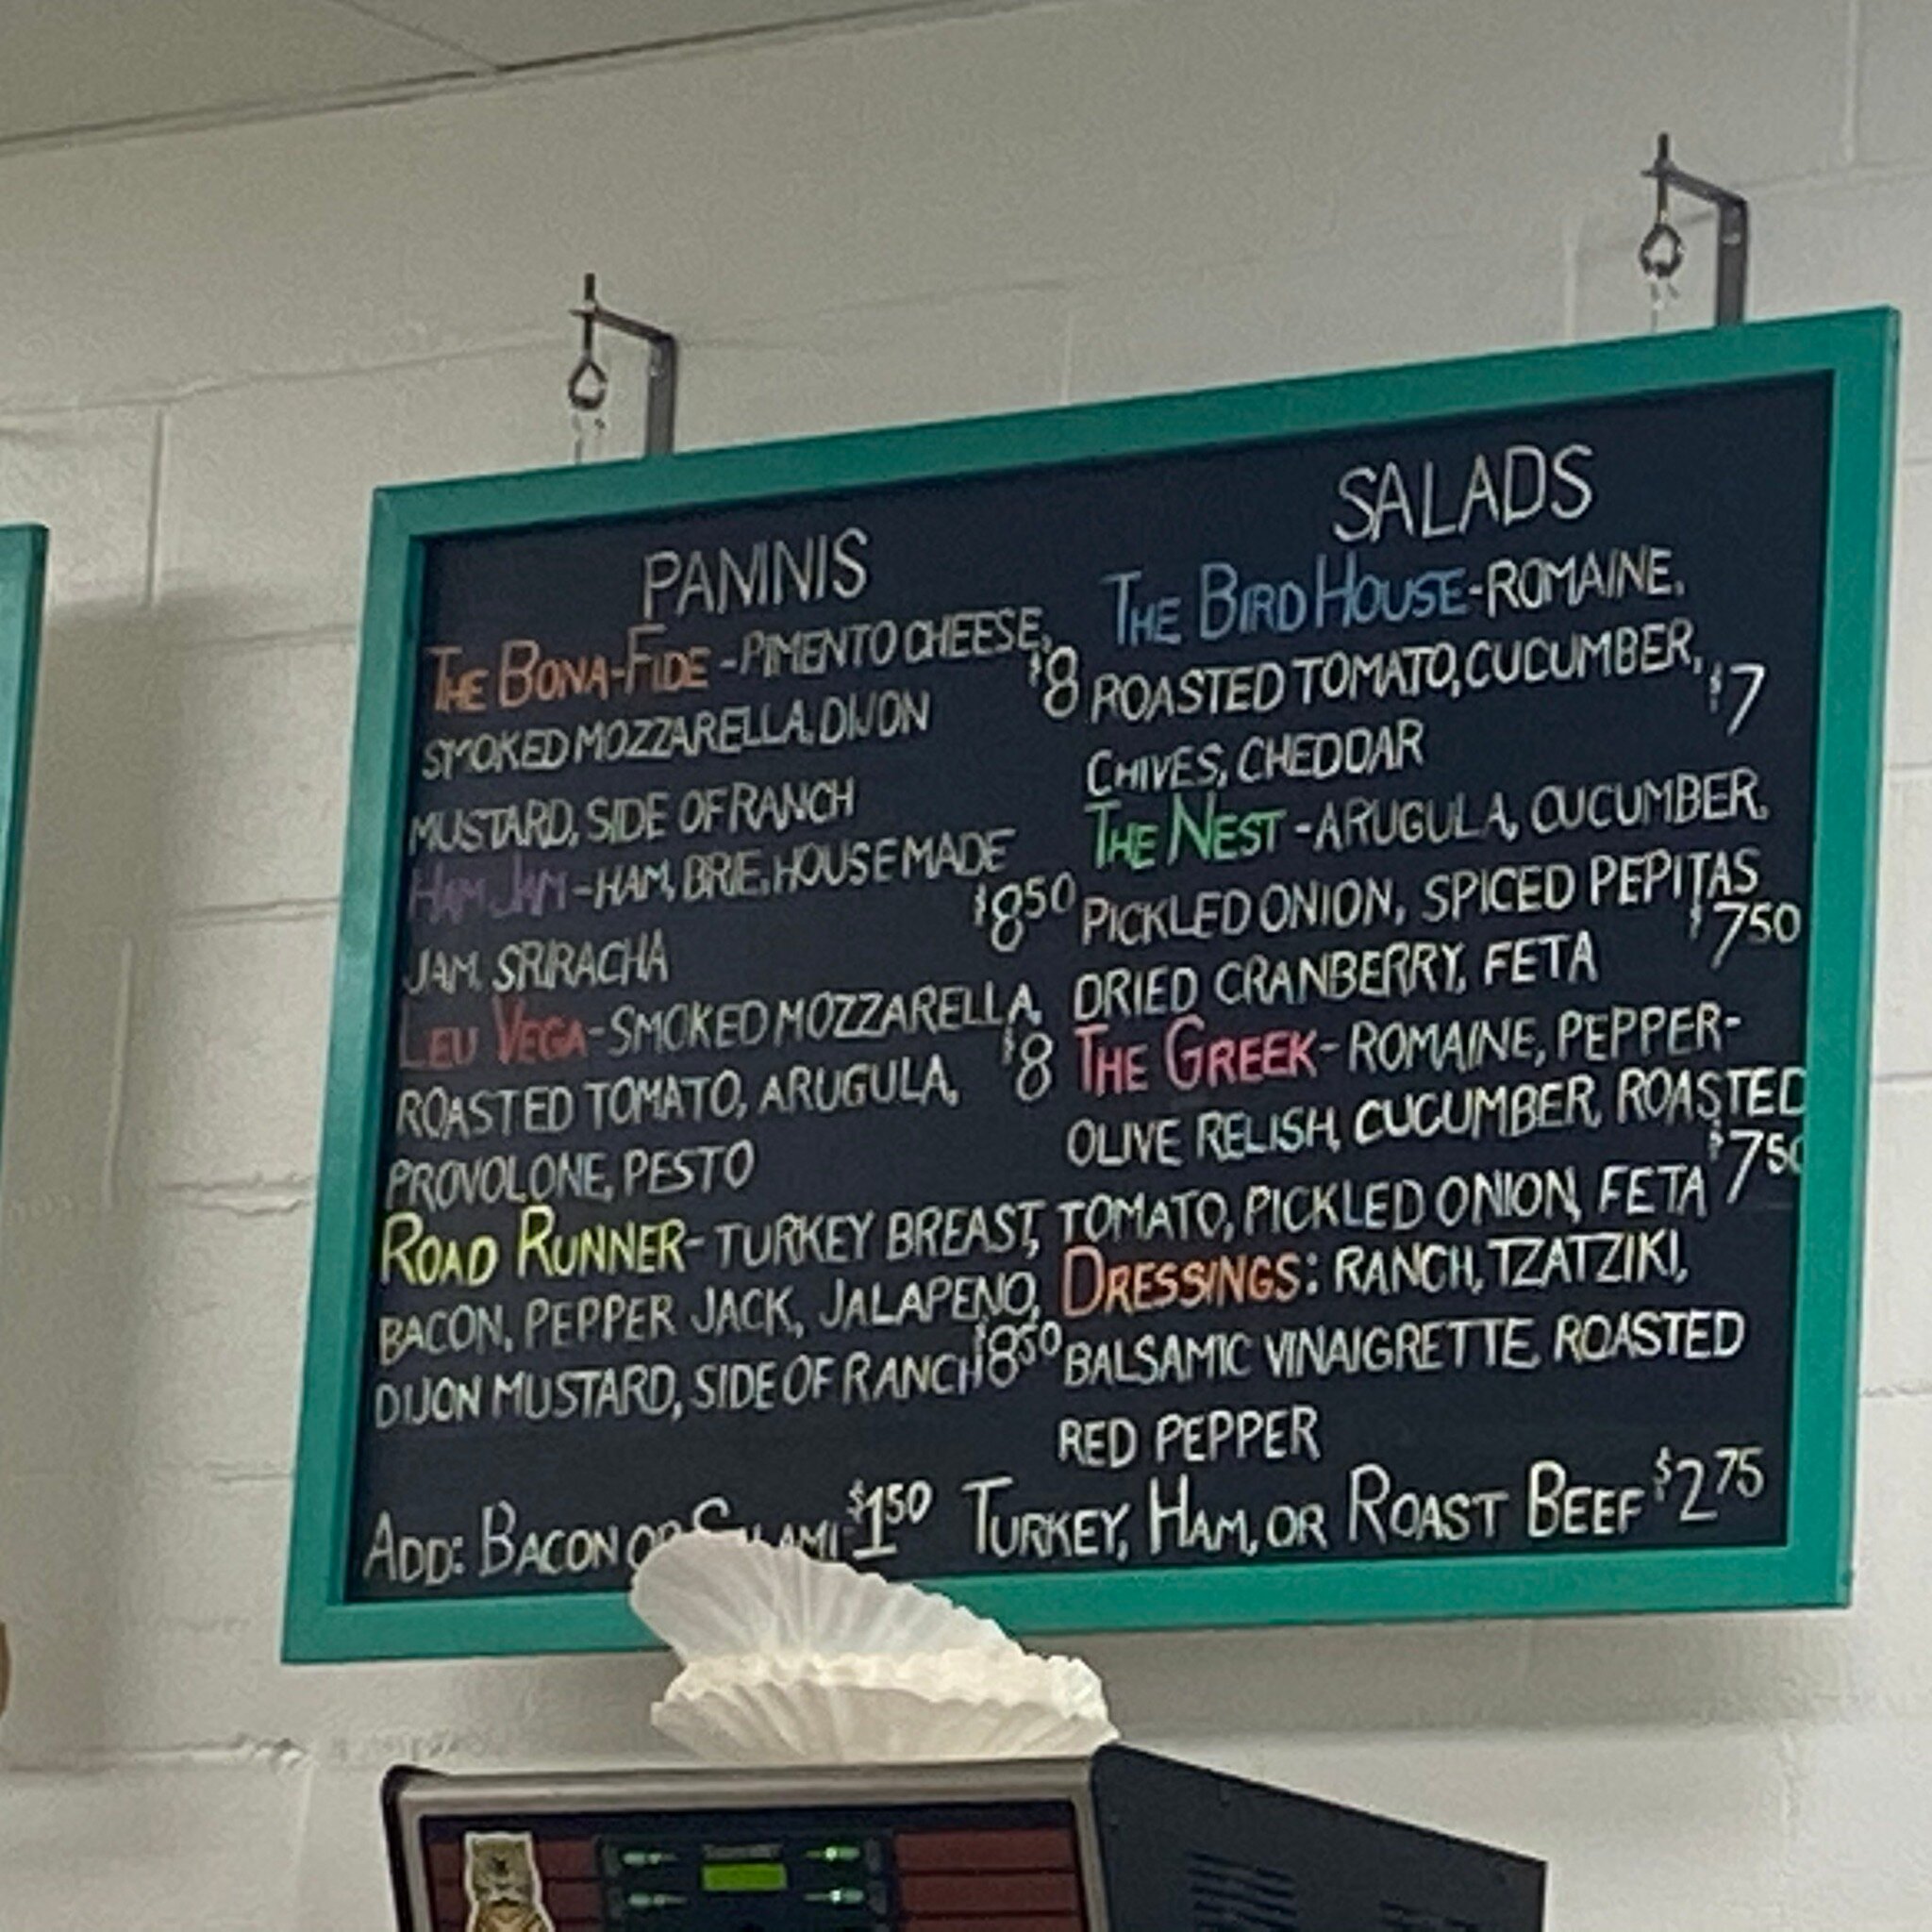 PANINIS
THE BONA-FIDE - PIMENTO CHEESE,
$8
SMOKED MOZZARELLA, DIJON
MUSTARD, SIDE OF RANCH
HAM JAM - HAM, BRIE, HOUSEMADE
$8.50
JAM, SRIRACHA
LEU VEGA - SMOKED MOZZARELLA,
$8
ROASTED TOMATO, ARUGULA,
PROVOLONE, PESTO
ROAD RUNNER - TURKEY BREAST,
BACON, PEPPER JACK, JALAPENO,
DIJON MUSTARD, SIDE OF RANCH $8.50
SALADS
THE BIRD HOUSE - ROMAINE,
ROASTED TOMATO, CUCUMBER,
$7
CHIVES, CHEDDAR
THE NEST - ARUGULA, CUCUMBER,
PICKLED ONION, SPICED PEPITAS
$7.50
DRIED CRANBERRY, FETA
THE GREEK - ROMAINE, PEPPER-
OLIVE RELISH, CUCUMBER, ROASTED
$7.50
TOMATO, PICKLED ONION, FETA
DRESSINGS: RANCH, TZATZIKI,
BALSAMIC VINAIGRETTE, ROASTED
RED PEPPER
ADD: BACON OR SALAMI $1.50 TURKEY, HAM, OR ROAST BEEF $2.75